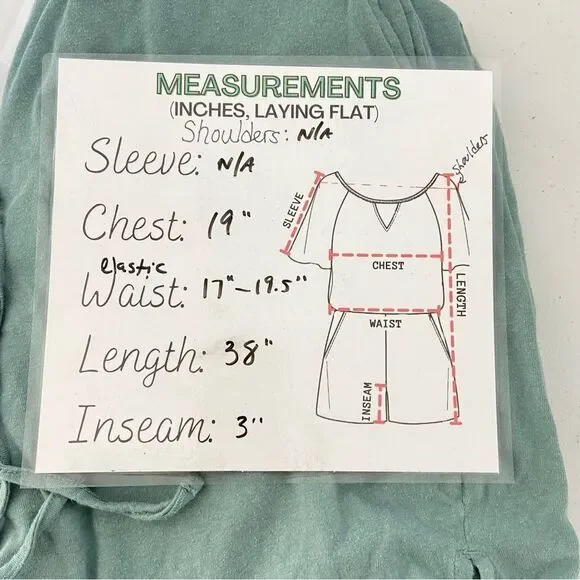 MEASUREMENTS
(INCHES, LAYING FLAT)
Shoulders: N/A
Sleeve: N/A
Chest: 19"
elastic
Waist: 17"-19.5"
Length: 38"
Inseam: 3"
Shoulders
SLEEVE
CHEST
LENGTH
WAIST
INSEAM